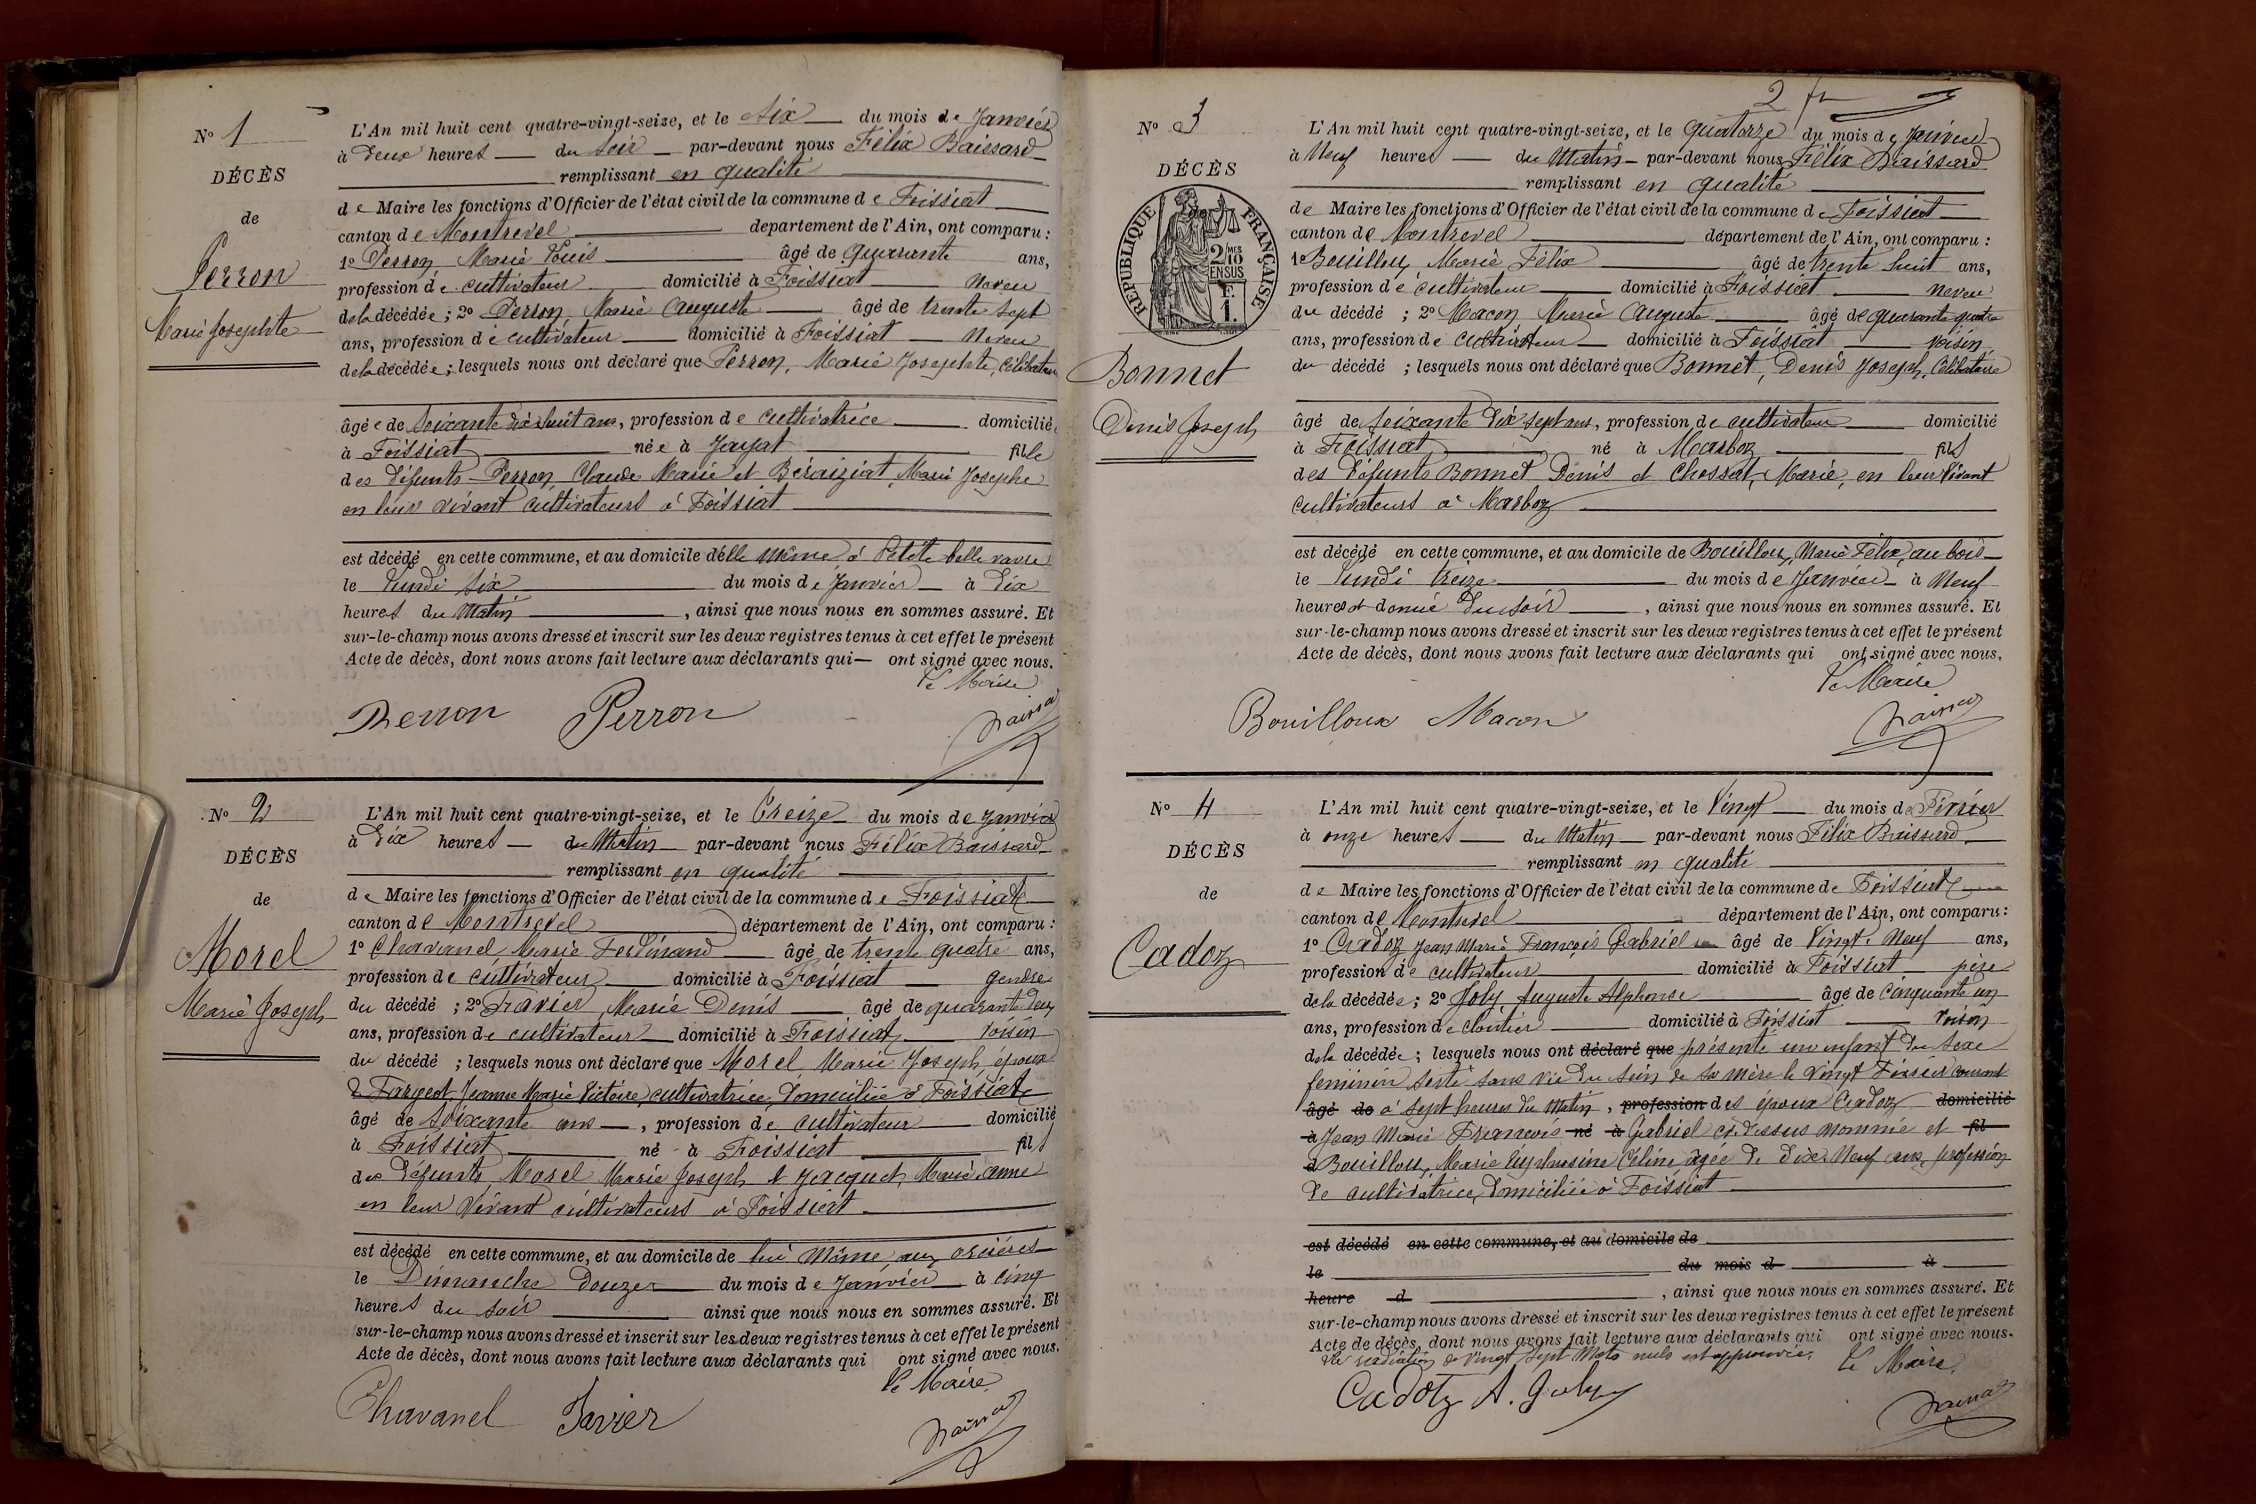 N° 1
DÉCÈS
de
Perron
Marie Josephte
L'An mil huit cent quatre-vingt-seize, et le six du mois de Janvier
à deux heures du soir par-devant nous Félix Baissard
remplissant en qualité
de Maire les fonctions d'Officier de l'état civil de la commune de Foissiat
canton de Montrevel département de l'Ain, ont comparu :
1° Perron Marie Louis âgé de quarante ans,
profession de cultivateur domicilié à Foissiat Neveu
de la décédée ; 2° Perron Marie Auguste âgé de trente sept
ans, profession de cultivateur domicilié à Foissiat Neveu
de la décédée ; lesquels nous ont déclaré que Perron, Marie Josephte, Célibataire
âgée de soixante dix huit ans, profession de cultivatrice domiciliée
à Foissiat née à Jayat fille
des défunts Perron, Claude Marie et Béraiziat, Marie Josephe
en leur vivant cultivateurs à Foissiat
est décédé en cette commune, et au domicile d'elle même à Petite belle vavre
le lundi six du mois de Janvier à dix
heures du Matin , ainsi que nous nous en sommes assuré. Et
sur-le-champ nous avons dressé et inscrit sur les deux registres tenus à cet effet le présent
Acte de décès, dont nous avons fait lecture aux déclarants qui ont signé avec nous.
Le Maire
Perron Perron
N° 2
DÉCÈS
de
Morel
Marie Joseph
L'An mil huit cent quatre-vingt-seize, et le treize du mois de Janvier
à dix heures du Matin par-devant nous Félix Baissard
remplissant en qualité
de Maire les fonctions d'Officier de l'état civil de la commune de Foissiat
canton de Montrevel département de l'Ain, ont comparu :
1° Chavanel Marie Ferdinand âgé de trente quatre ans,
profession de cultivateur domicilié à Foissiat gendre
du décédé ; 2° Favier, Marie Denis âgé de quarante deux
ans, profession de cultivateur domicilié à Foissiat voisin
du décédé ; lesquels nous ont déclaré que Morel Marie Joseph, époux
de Fargeot, Jeanne Marie Victoire, cultivatrice, domiciliée à Foissiat
âgé de soixante ans , profession de cultivateur domicilié
à Foissiat né à Foissiat fils
des défunts Morel Marie Joseph et Jacquet, Marie Anne
en leur vivant cultivateurs à Foissiat
est décédé en cette commune, et au domicile de lui Même aux orcières
le Dimanche douze du mois de Janvier à cinq
heures du soir ainsi que nous nous en sommes assuré. Et
sur-le-champ nous avons dressé et inscrit sur les deux registres tenus à cet effet le présent
Acte de décès, dont nous avons fait lecture aux déclarants qui ont signé avec nous.
Le Maire
Chavanel Favier
2
N° 3
DÉCÈS
RÉPUBLIQUE FRANÇAISE
2 MES
10
EN SUS
F.
1.
Bonnet
Denis Joseph
L'An mil huit cent quatre-vingt-seize, et le quatorze du mois de Janvier
à Neuf heures du Matin par-devant nous Félix Baissard
remplissant en qualité
de Maire les fonctions d'Officier de l'état civil de la commune de Foissiat
canton de Montrevel département de l'Ain, ont comparu :
1° Bouilloux, Marie Félix âgé de trente huit ans,
profession de cultivateur domicilié à Foissiat neveu
du décédé ; 2° Macon Marie Auguste âgé de quarante quatre
ans, profession de cultivateur domicilié à Foissiat voisin
du décédé ; lesquels nous ont déclaré que Bonnet, Denis Joseph, Célibataire
âgé de soixante dix sept ans, profession de cultivateur domicilié
à Foissiat né à Marboz fils
des défunts Bonnet Denis et Chossat, Marie, en leur vivant
cultivateurs à Marboz
est décédé en cette commune, et au domicile de Bouilloux, Marie Félix, au bois
le lundi treize du mois de Janvier à Neuf
heures et demie du soir , ainsi que nous nous en sommes assuré. Et
sur-le-champ nous avons dressé et inscrit sur les deux registres tenus à cet effet le présent
Acte de décès, dont nous avons fait lecture aux déclarants qui ont signé avec nous.
Le Maire
Bouilloux Macon
N° 4
DÉCÈS
de
Cadoz
L'An mil huit cent quatre-vingt-seize, et le Vingt du mois de Février
à onze heures du Matin par-devant nous Félix Baissard
remplissant en qualité
de Maire les fonctions d'Officier de l'état civil de la commune de Foissiat
canton de Montrevel département de l'Ain, ont comparu :
1° Cadoz Jean Marie François Gabriel âgé de Vingt Neuf ans,
profession de cultivateur domicilié à Foissiat père
de la décédée ; 2° Joly Auguste Alphonse âgé de Cinquante un
ans, profession de cloutier domicilié à Foissiat voisin
de la décédée ; lesquels nous ont déclaré que présenté un enfant du sexe
féminin sorti sans vie du sein de sa mère le vingt Février courant
âgé de à sept heures du Matin , profession des époux Cadoz domicilié
à Jean Marie François né à Gabriel ci dessus nommé et fil
d Bouilloux, Marie Euphrosine Céline, âgée de dix Neuf ans, profession
de cultivatrice, domiciliée à Foissiat
est décédé en cette commune, et au domicile de
le du mois d à
heure d , ainsi que nous nous en sommes assuré. Et
sur-le-champ nous avons dressé et inscrit sur les deux registres tenus à cet effet le présent
Acte de décès, dont nous avons fait lecture aux déclarants qui ont signé avec nous.
La radiation de vingt sept Mots nuls est approuvée. Le Maire,
Cadoz A. Joly